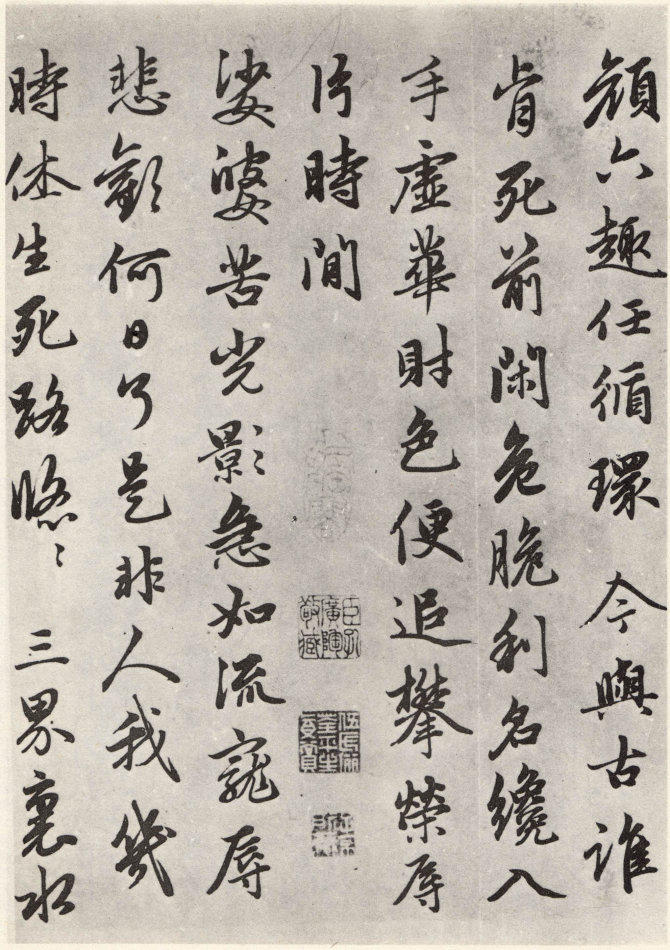 顏六趣任循環 今與古誰
肯死前閑危脆利名纔入
手虛華財色便追攀榮辱
片時間
娑婆苦光影急如流寵辱
悲歡何日了是非人我幾
時休生死路悠〻 三界裏水